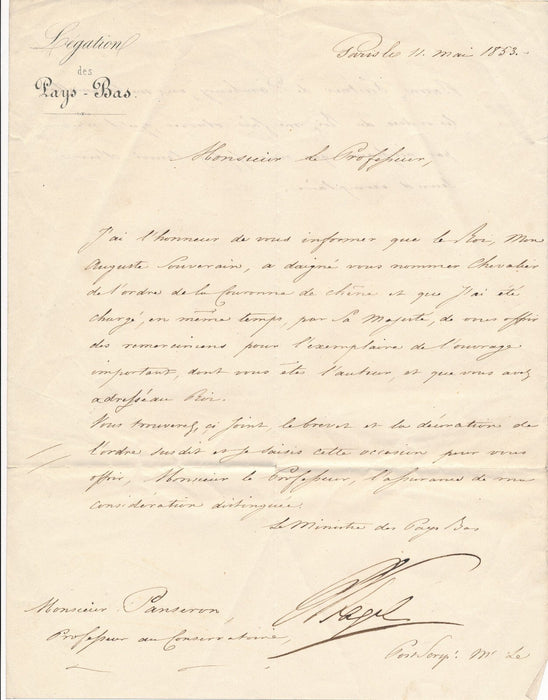 Légation
des
Pays-Bas.
Paris le 11. mai 1853.
Monsieur le Professeur,
J'ai l'honneur de vous informer que le Roi, Mon
Auguste Souverain, a daigné vous nommer Chevalier
de l'ordre de la Couronne de chêne et que j'ai été
chargé, en même temps, par Sa Majesté, de vous offrir
des remerciemens pour l'exemplaire de l'ouvrage
important, dont vous êtes l'auteur, et que vous avez
adressé au Roi.
Vous trouverez, ci joint, le brevet et la décoration de
l'ordre susdit et je saisis cette occasion pour vous
offrir, Monsieur le Professeur, l'assurance de ma
considération distinguée.
Le Ministre des Pays Bas
Fagel
Monsieur Panseron
Professeur au Conservatoire,
Mr Le